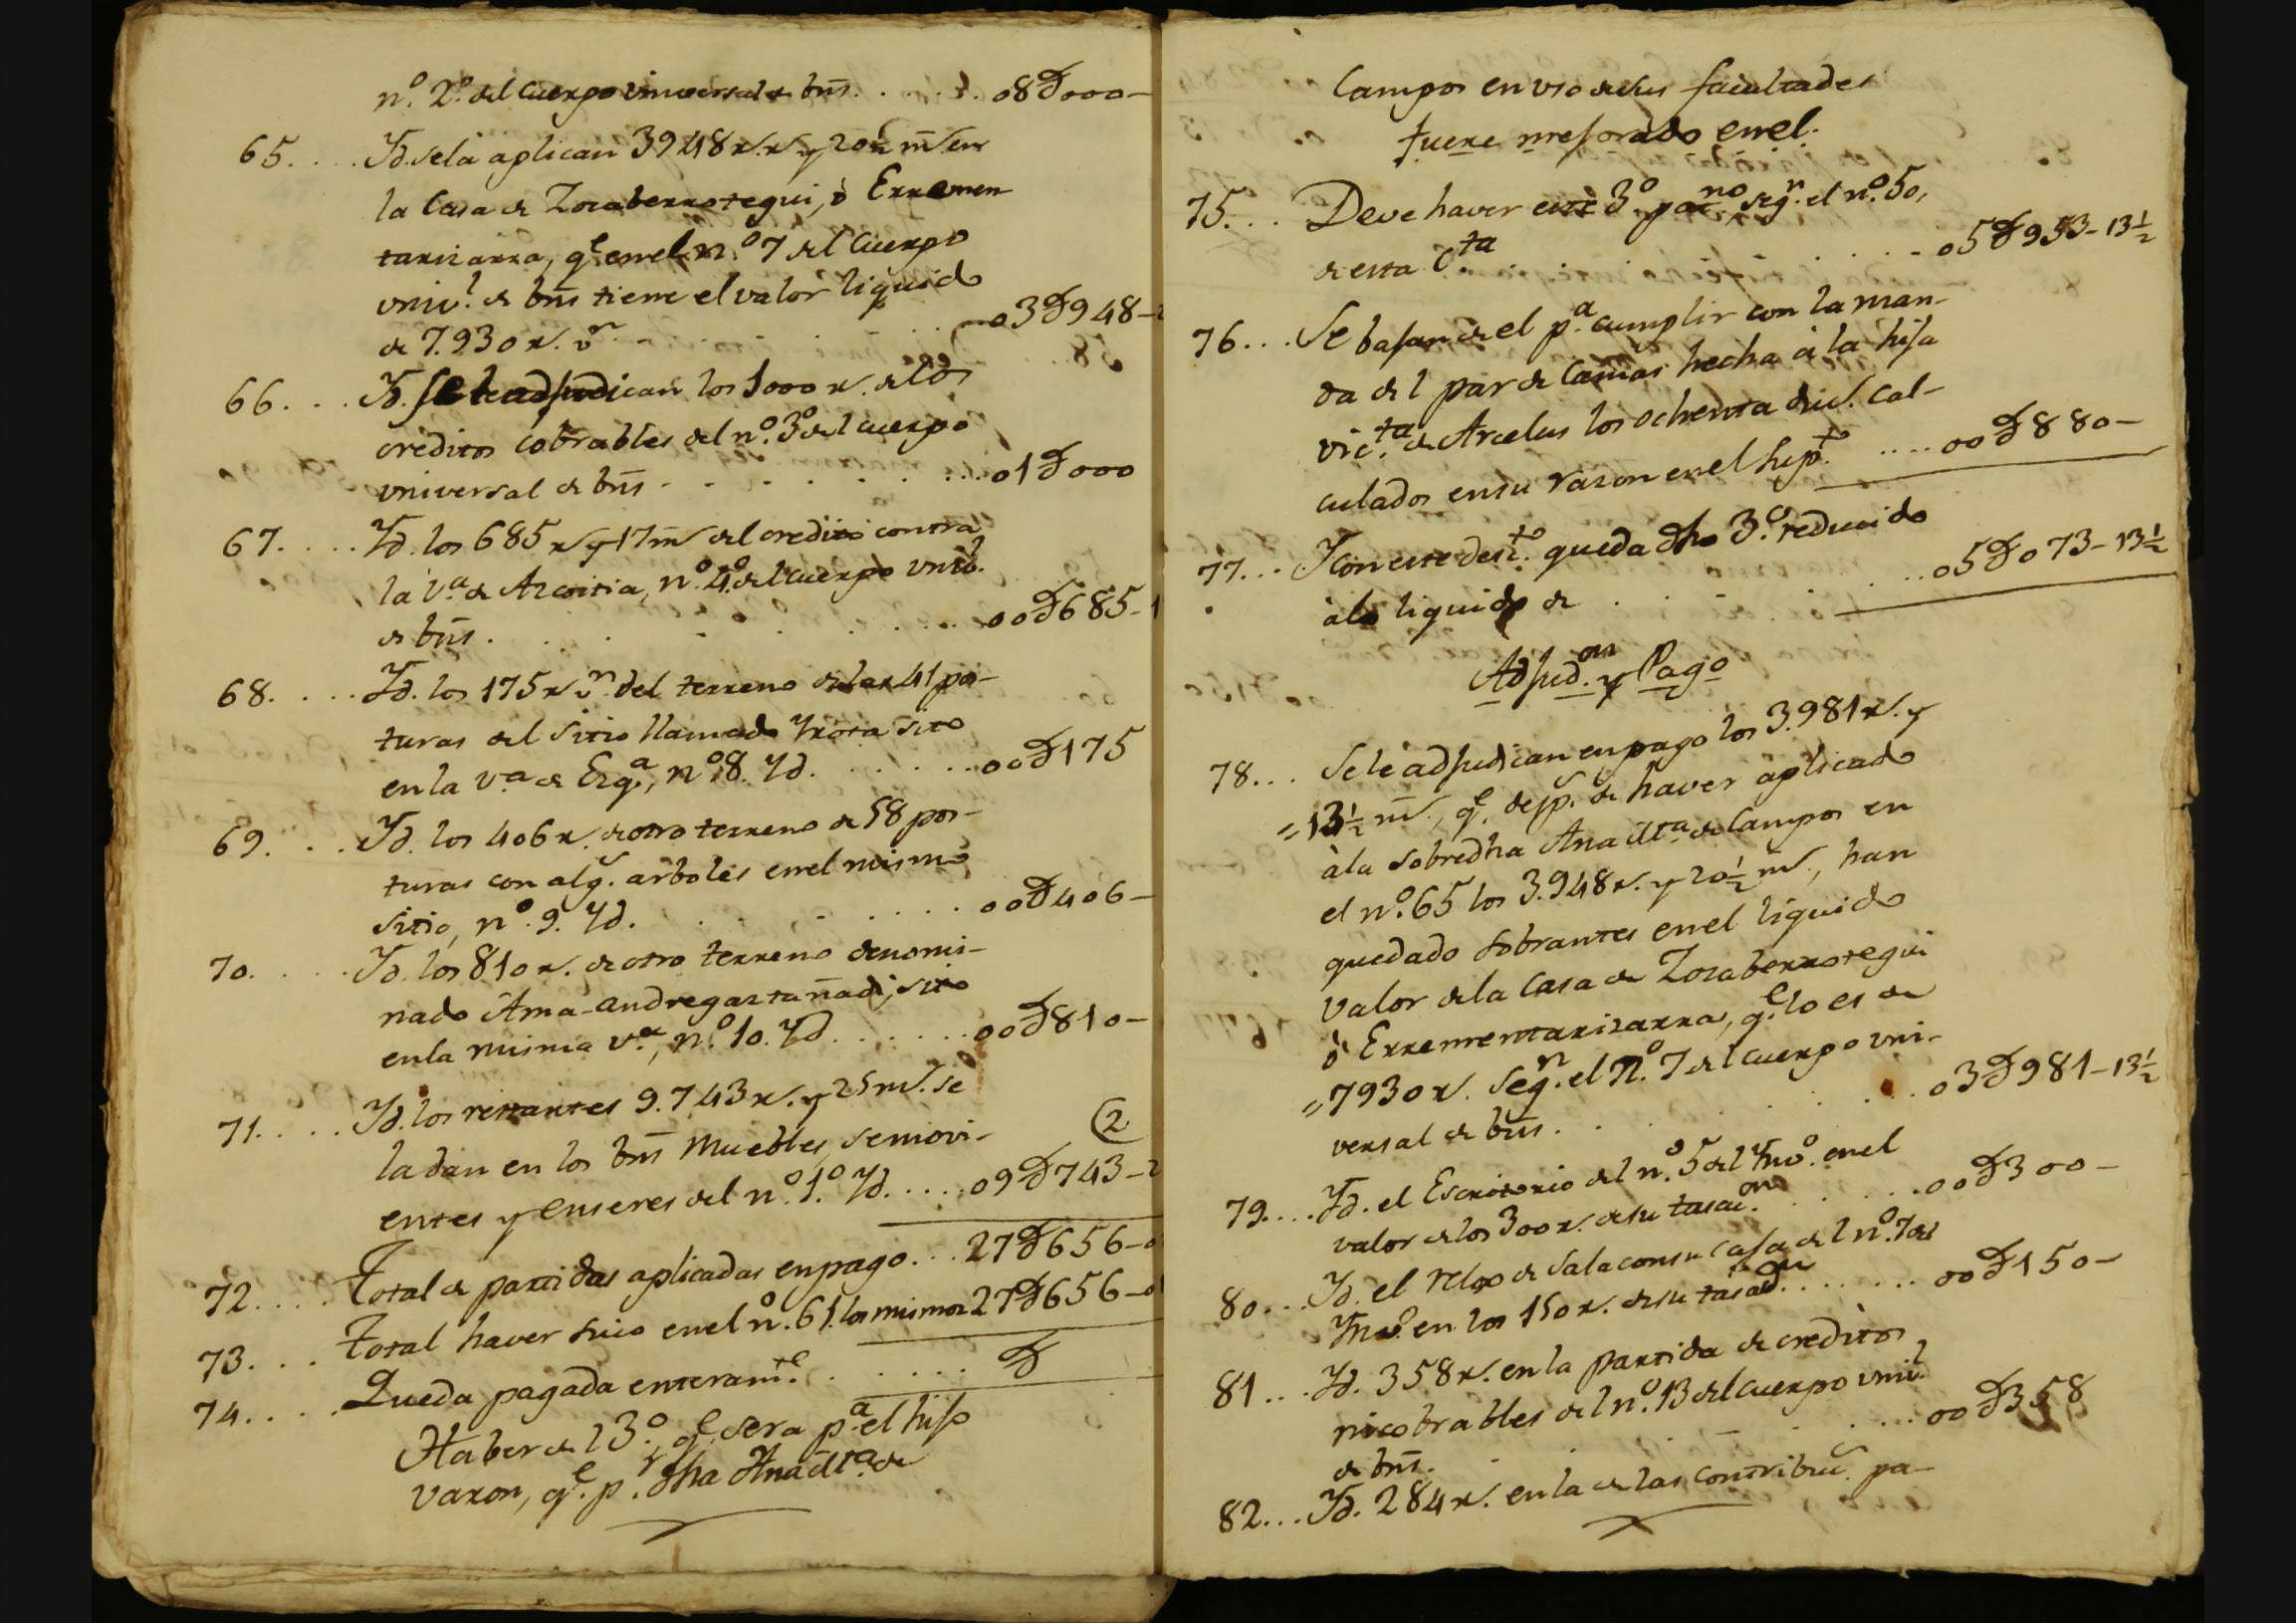 nº. 2º. del Cuerpo vniversal de bns̃. . . . . . 08U000-
65. . . . Yd. se la aplican 3948 r.s y 20½ m̃s. en
la Casa de Zozaberrotegui, ò Erremen
tarizarra, q.e en el n.º 7 del Cuerpo
vniv.l de bns̃ tiene el valor liquido
de 7.930 r.s v.n - . . . . . 03U948-2
66. . . . Yd. se le adjudican los 1000 r.s de los
creditos cobrables del n.º 3º del cuerpo
vniversal de bns̃ - . . . . . . . 01U000
67. . . . Yd. los 685 r.s y 17 m̃s del credito contra
la V.a de Azcoitia, n.º 4.º del cuerpo vniv.l
de bns̃ . . . . . . . 00U685-1
68. . . . Yd. los 175 r.s v.n del terreno de las 41 pos-
turas del sitio llamado Yrota sito
en la v.a de Ezq.a, n.º 8. Yd. . . . . . . 00U175
69. . . . Yd. los 406 r.s de otro terreno de 58 pos-
turas con alg.s arboles en el mismo
sitio, n.º 9. Yd. . . . . . . . 00U406-
70. . . . Yd. los 810 r.s de otro terreno denomi-
nado Ama-andregaztañadi, sito
en la misma v.a, n.º 10. Yd . . . . . . 00U810-
71. . . . Yd. los restantes 9.743 r.s y 25 m̃s. se
la dan en los bns̃ Muebles, semovi- (2
entes y enseres del n.º 1.º Yd. . . . . 09U743-2
72. . . . Total de partidas aplicadas en pago. . . 27U656-0
73. . . Total haver suio en el n.º 61. los mismos 27U656-0
74. . . . Queda pagada enteram.te . . . . . U
Haber del 3.º, q.e sera p.a el hijo
varon, q.e p.r dha Ana M.ta de
Campos en vso de sus facultades
fuere mejorado en el.
75. . . Deve haver este 3.º seg.n el n.º 50,
de esta C.ta . . . . . . . 05U953-13½
76. . . Se bajan de el p.a cumplir con la man-
da del par de Camas hecha à la hija
Vic.ta de Arcelus los ochenta duc.s cal-
culados en su razon en el sup.to . . . . 00U880-
77. . . Y con este desc.to queda dho 3.º reducido
à lo liquido de . . . . . . . 05U073-13½
Adjud.on y Pago
78. . . Se le adjudican en pago los 3.981 r.s y
=13½ m̃s, q.e desp.s de haver aplicado
à la sobredha Ana M.ta de Campos en
el n.º 65 los 3.948 r.s y 20½ m̃s, han
quedado sobrantes en el liquido
valor de la Casa de Zozaberrotegui
ò Errementarizarra, q.e lo es de
=7930 r.s seg.n el N.º 7 del cuerpo vni-
versal de bns̃ . . . . . . . 03U981-13½
79. . . . Yd. el Escritorio del n.º 5 del Ynv.º en el
valor de los 300 r.s de su tasac.on . . . . . 00U300-
80. . . Yd. el relox de Sala con su Caja del n.º 7 del
Ynv.º en los 150 r.s de su tasac.on . . . . . . 00U150-
81. . . Yd. 358 r.s en la partida de creditos
nicobrables del n.º 13 del Cuerpo vniv.l
de bns̃. . . . . . . . 00U358
82. . . Yd. 284 r.s en la de las contribuc.s pa-